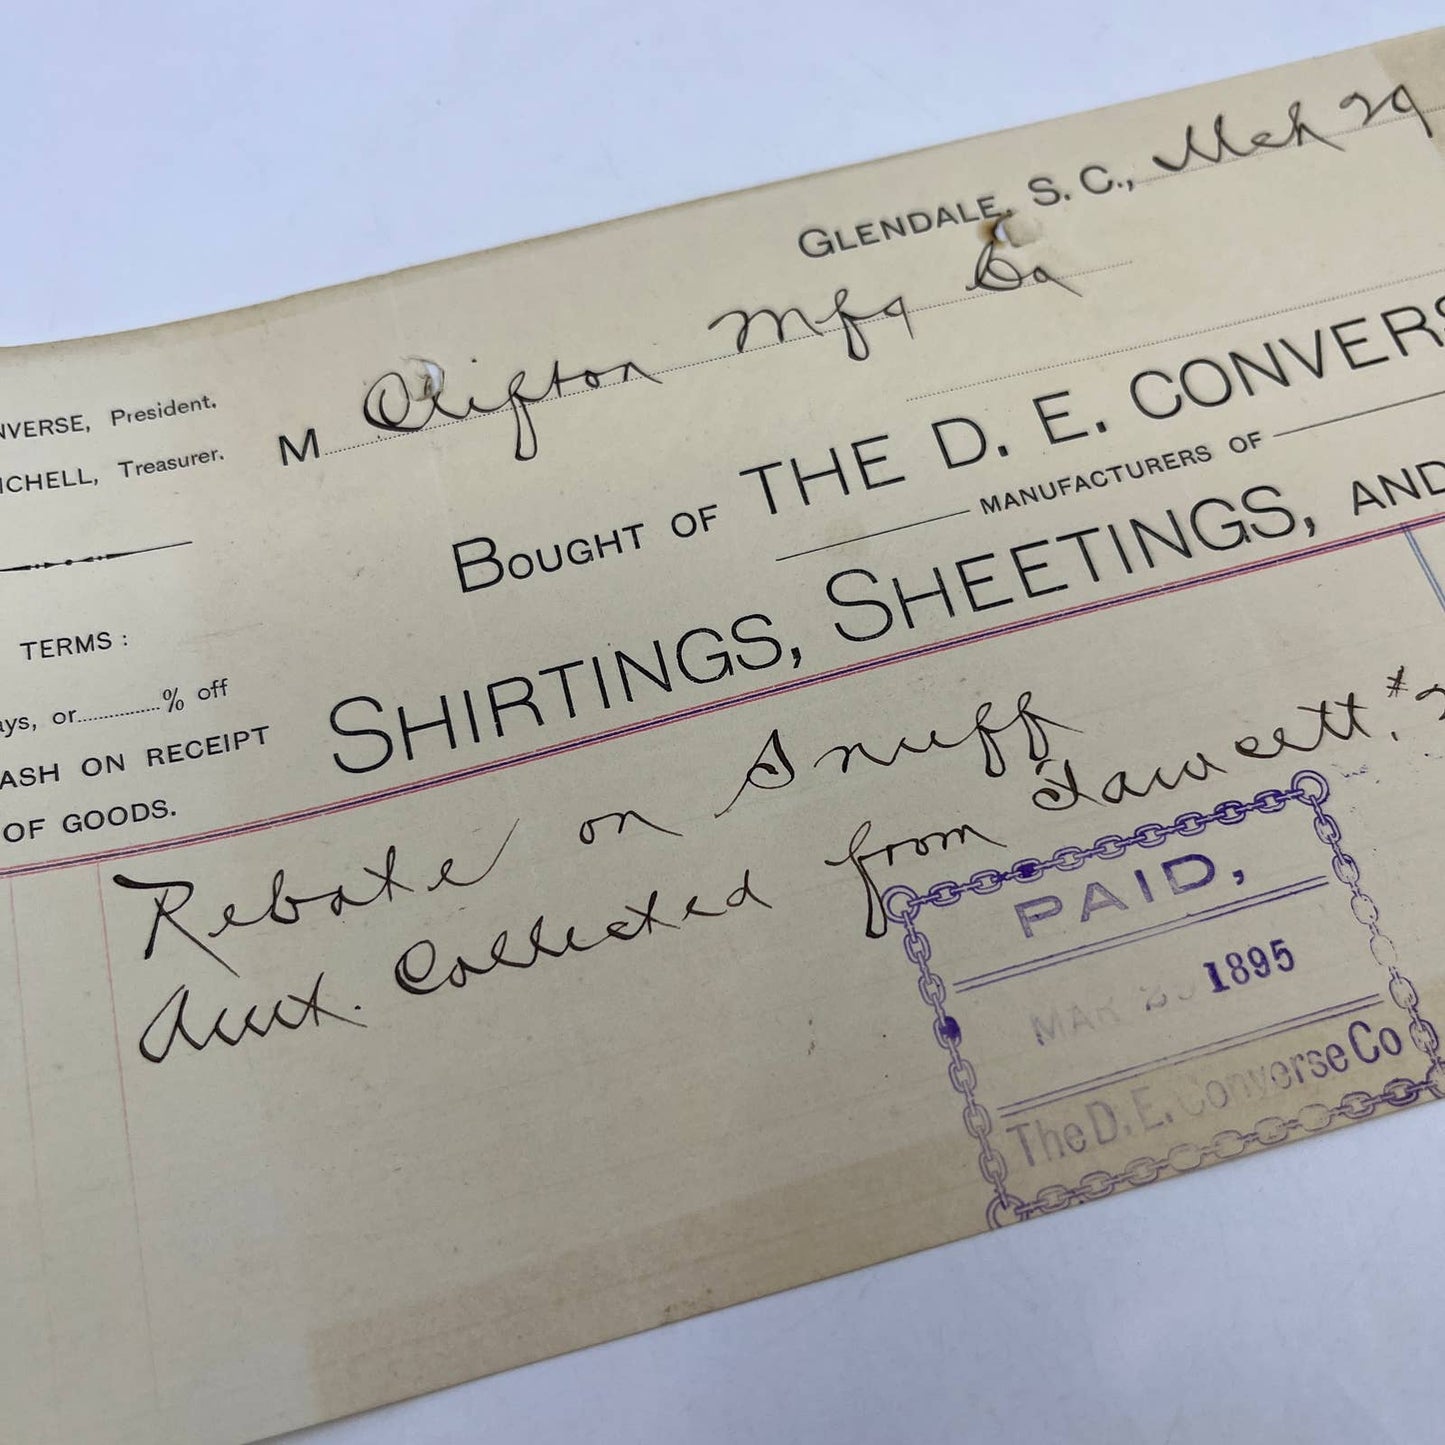 GLENDALE, S. C., Mch 29
M Clifton Mfg Co
NVERSE, President.
ICHELL, Treasurer.
BOUGHT OF THE D. E. CONVERS
MANUFACTURERS OF
SHIRTINGS, SHEETINGS, AND
TERMS:
ays, or % off
ASH ON RECEIPT
OF GOODS.
Rebate on Snuff
Amt. Collected from Fawcett, #2
PAID,
MAR 29 1895
The D. E. Converse Co